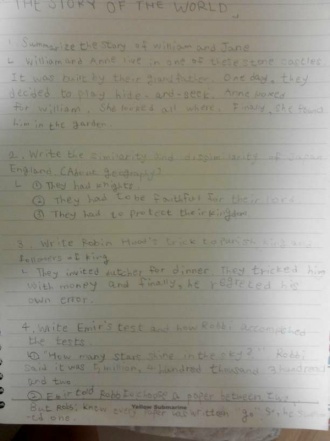 THE STORY OF THE WORLD
1. Summarize the story of William and Jane
William and Anne live in one of these stone castles.
It was built by their grandfather. One day, they
decided to play hide-and-seek. Anne
for William. She all where. she found
him in the garden
2. Write the similarity and dissimilarity of Japan
England (About geography)
① They had knights
② They had to be faithful for their lord
③ They had to protect their kingdom.
3. Write Robin Hood's trick to and
followers of king
They invited butcher for dinner. They tricked him
with money and finally, he regretted his
own error.
4. Write Emir's test and how Rabbi accomplished
the tests.
① "How many stars shine in the sky?" Rabbi
said it was 5 million, hundred thousand, hundred
and two
② Emir told Rabbi to choose a paper between two,
But Rabbi knew every paper was written "go" so he
ed one.
Yellow Submarine